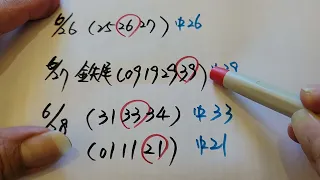 6/26 (25 26 27) 中26
6/27 鉄尾 (09 19 29 39) 中39
6/28 (31 33 34) 中33
(01 11 21) 中21